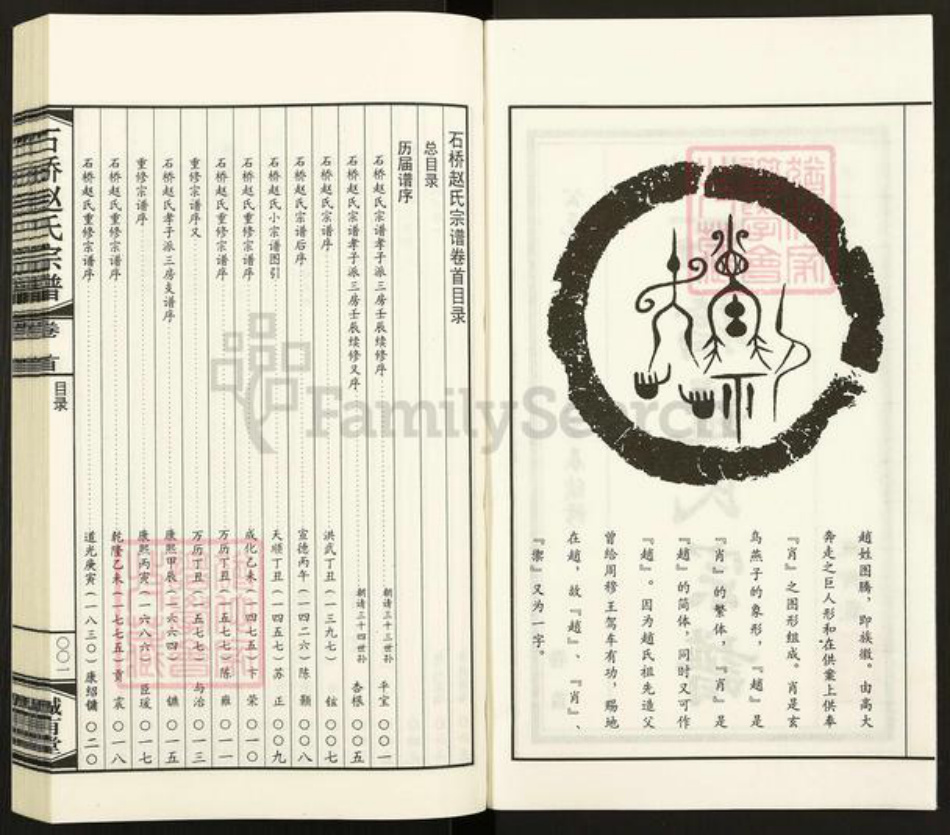 趙姓图腾，即族徽。由高大
奔走之巨人形和在供案上供奉
『肖』之图形组成。肖是玄
鸟燕子的象形，『趙』是
『肖』的繁体，『肖』是
『趙』的简体，同时又可作
『趙』。因为趙氏祖先造父
曾给周穆王驾车有功，赐地
在趙，故『趙』、『肖』、
『禦』又为一字。
石桥赵氏宗谱卷首目录
总目录
历届谱序
石桥赵氏宗谱孝子派三房壬辰续修序 朝请三十三世孙 平宝 〇〇一
石桥赵氏宗谱孝子派三房壬辰续修又序 朝请三十四世孙 杏根 〇〇五
石桥赵氏宗谱序 洪武丁丑(一三九七) 铉 〇〇七
石桥赵氏宗谱后序 宣德丙午(一四二六)陈 颢 〇〇八
石桥赵氏小宗谱图引 天顺丁丑(一四五七)苏 正 〇〇九
石桥赵氏重修宗谱序 成化乙未(一四七五)卞 荣 〇一〇
石桥赵氏重修宗谱序 万历丁丑(一五七七)陈 雍 〇一一
重修宗谱序又 万历丁丑(一五七七) 与治 〇一三
石桥赵氏孝子派三房支谱序 康熙甲辰(一六六四) 镳 〇一五
重修宗谱序 康熙丙寅(一六八六) 臣瑗 〇一七
石桥赵氏重修宗谱序 乾隆乙未(一七七五)贡 震 〇一八
石桥赵氏重修宗谱序 道光庚寅(一八三〇)康绍镛 〇二〇
石桥赵氏宗谱
卷首
目录
〇〇一
FamilySearch